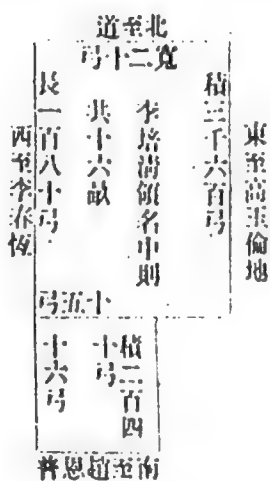 北至道
寬二十弓
東至高玉倫地
積三千六百弓
李培清領名中則
共十六畝
長一百八十弓
西至李春恆
十五弓
積二百四
十弓
十六弓
南至趙恩普